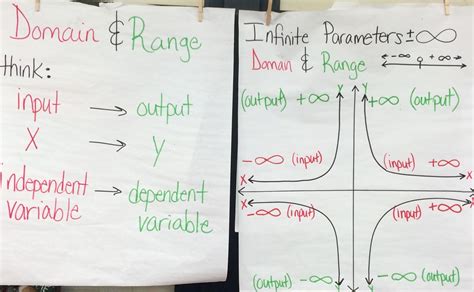 Domain & Range
think:
input → output
X → Y
independent variable → dependent variable
Infinite Parameters ±∞
Doman & Range
-∞ +∞
(output) +∞ Y Y +∞ (output)
-∞ (input) (input) +∞
X X
X X
-∞ (input) (input) +∞
(output) -∞ Y Y -∞ (output)